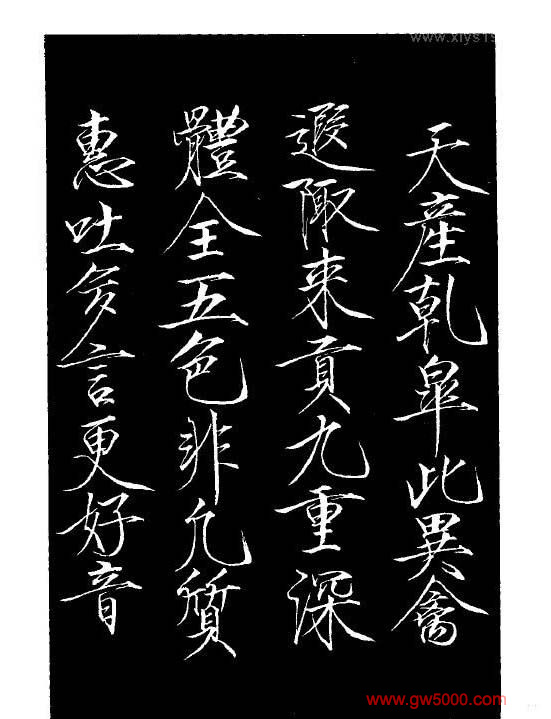 天產乹皐此異禽
遐陬来貢九重深
體全五色非凡質
惠吐多言更好音
www.gw5000.com